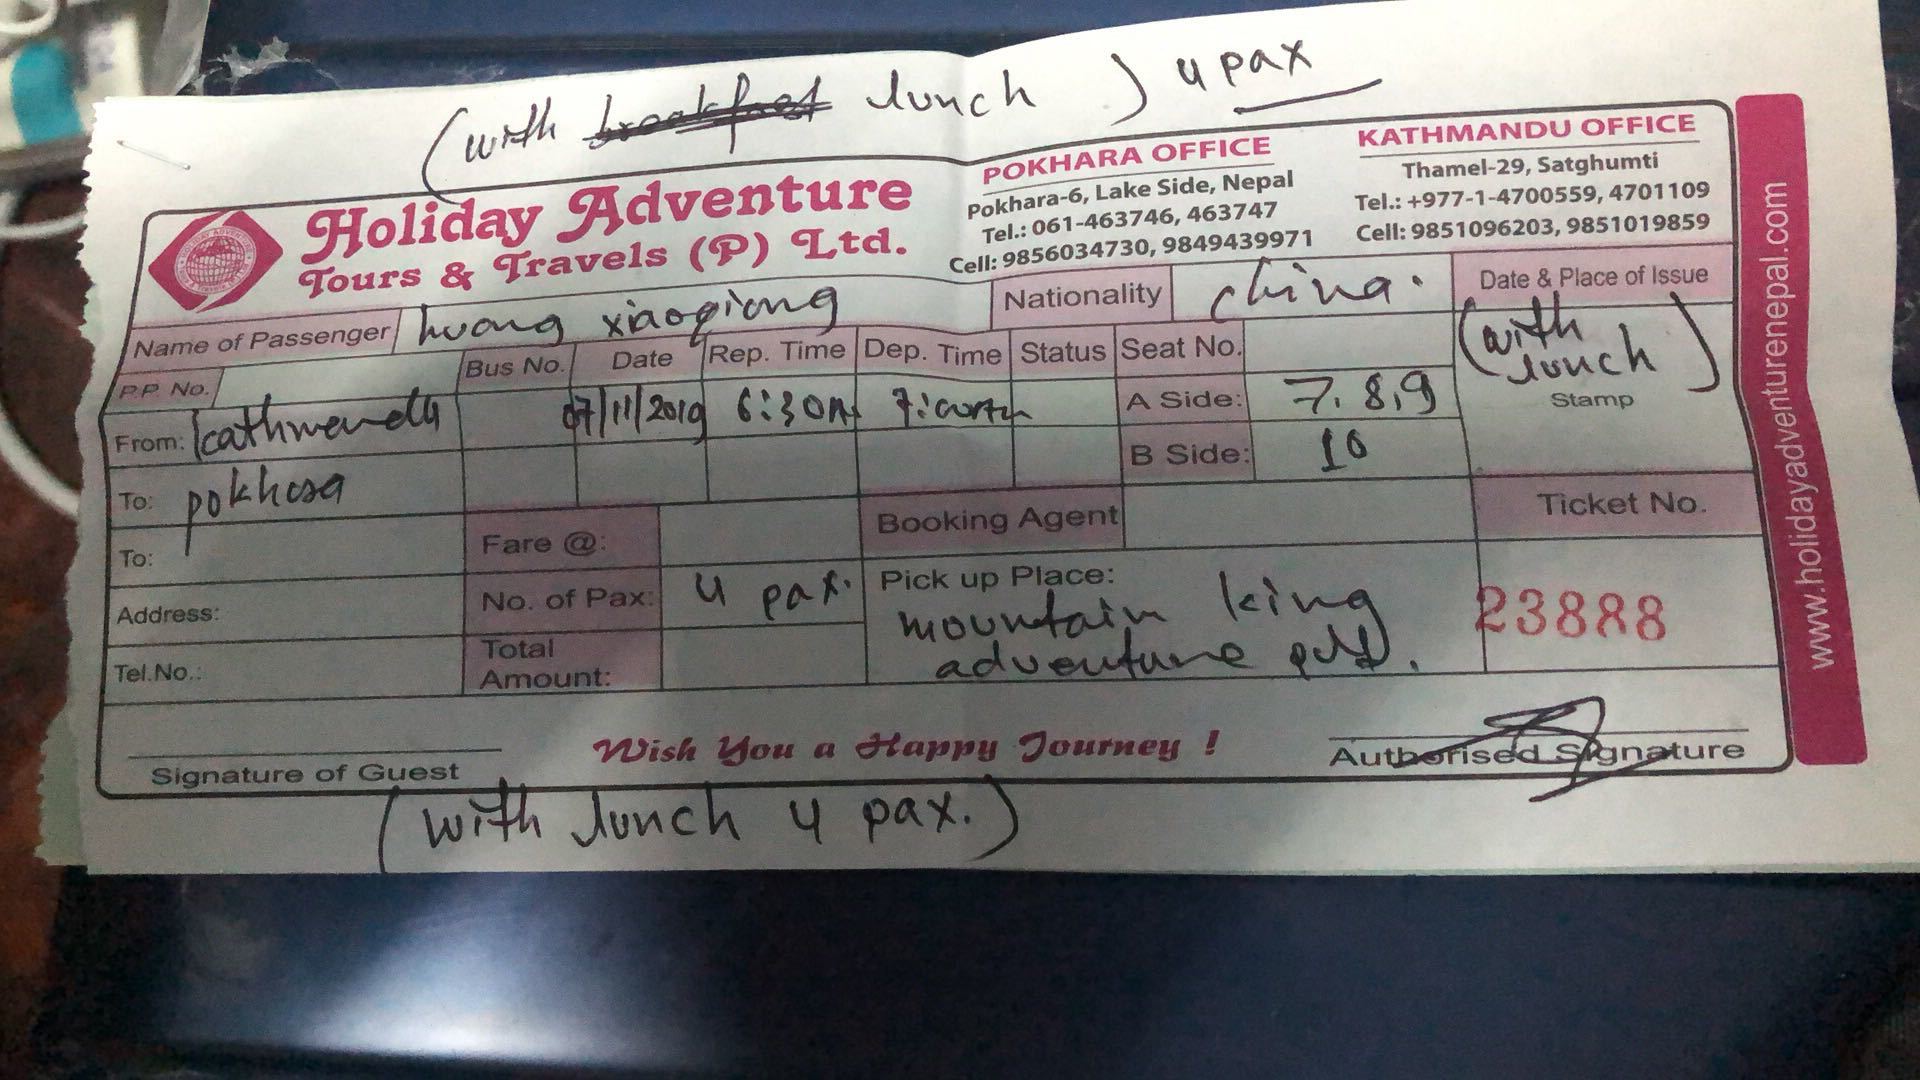 (with breakfast lunch ) 4 pax
Holiday Adventure
Tours & Travels (P) Ltd.
POKHARA OFFICE
Pokhara-6, Lake Side, Nepal
Tel.: 061-463746, 463747
Cell: 9856034730, 9849439971
KATHMANDU OFFICE
Thamel-29, Satghumti
Tel.: +977-1-4700559, 4701109
Cell: 9851096203, 9851019859
Name of Passenger huang xiaoqiong Nationality china. Date & Place of Issue
(with lunch)
Stamp
P.P. No. Bus No. Date Rep. Time Dep. Time Status Seat No.
From: kathmandu 07/11/2019 6:30AM A Side: 7, 8, 9
To: pokhara B Side: 10
To: Fare @: Booking Agent Ticket No.
Address: No. of Pax: 4 pax. Pick up Place: mountain king
adventure 23888
Tel.No.: Total Amount:
Wish You a Happy Journey !
Signature of Guest Authorised Signature
(with lunch 4 pax.)
www.holidayadventurenepal.com